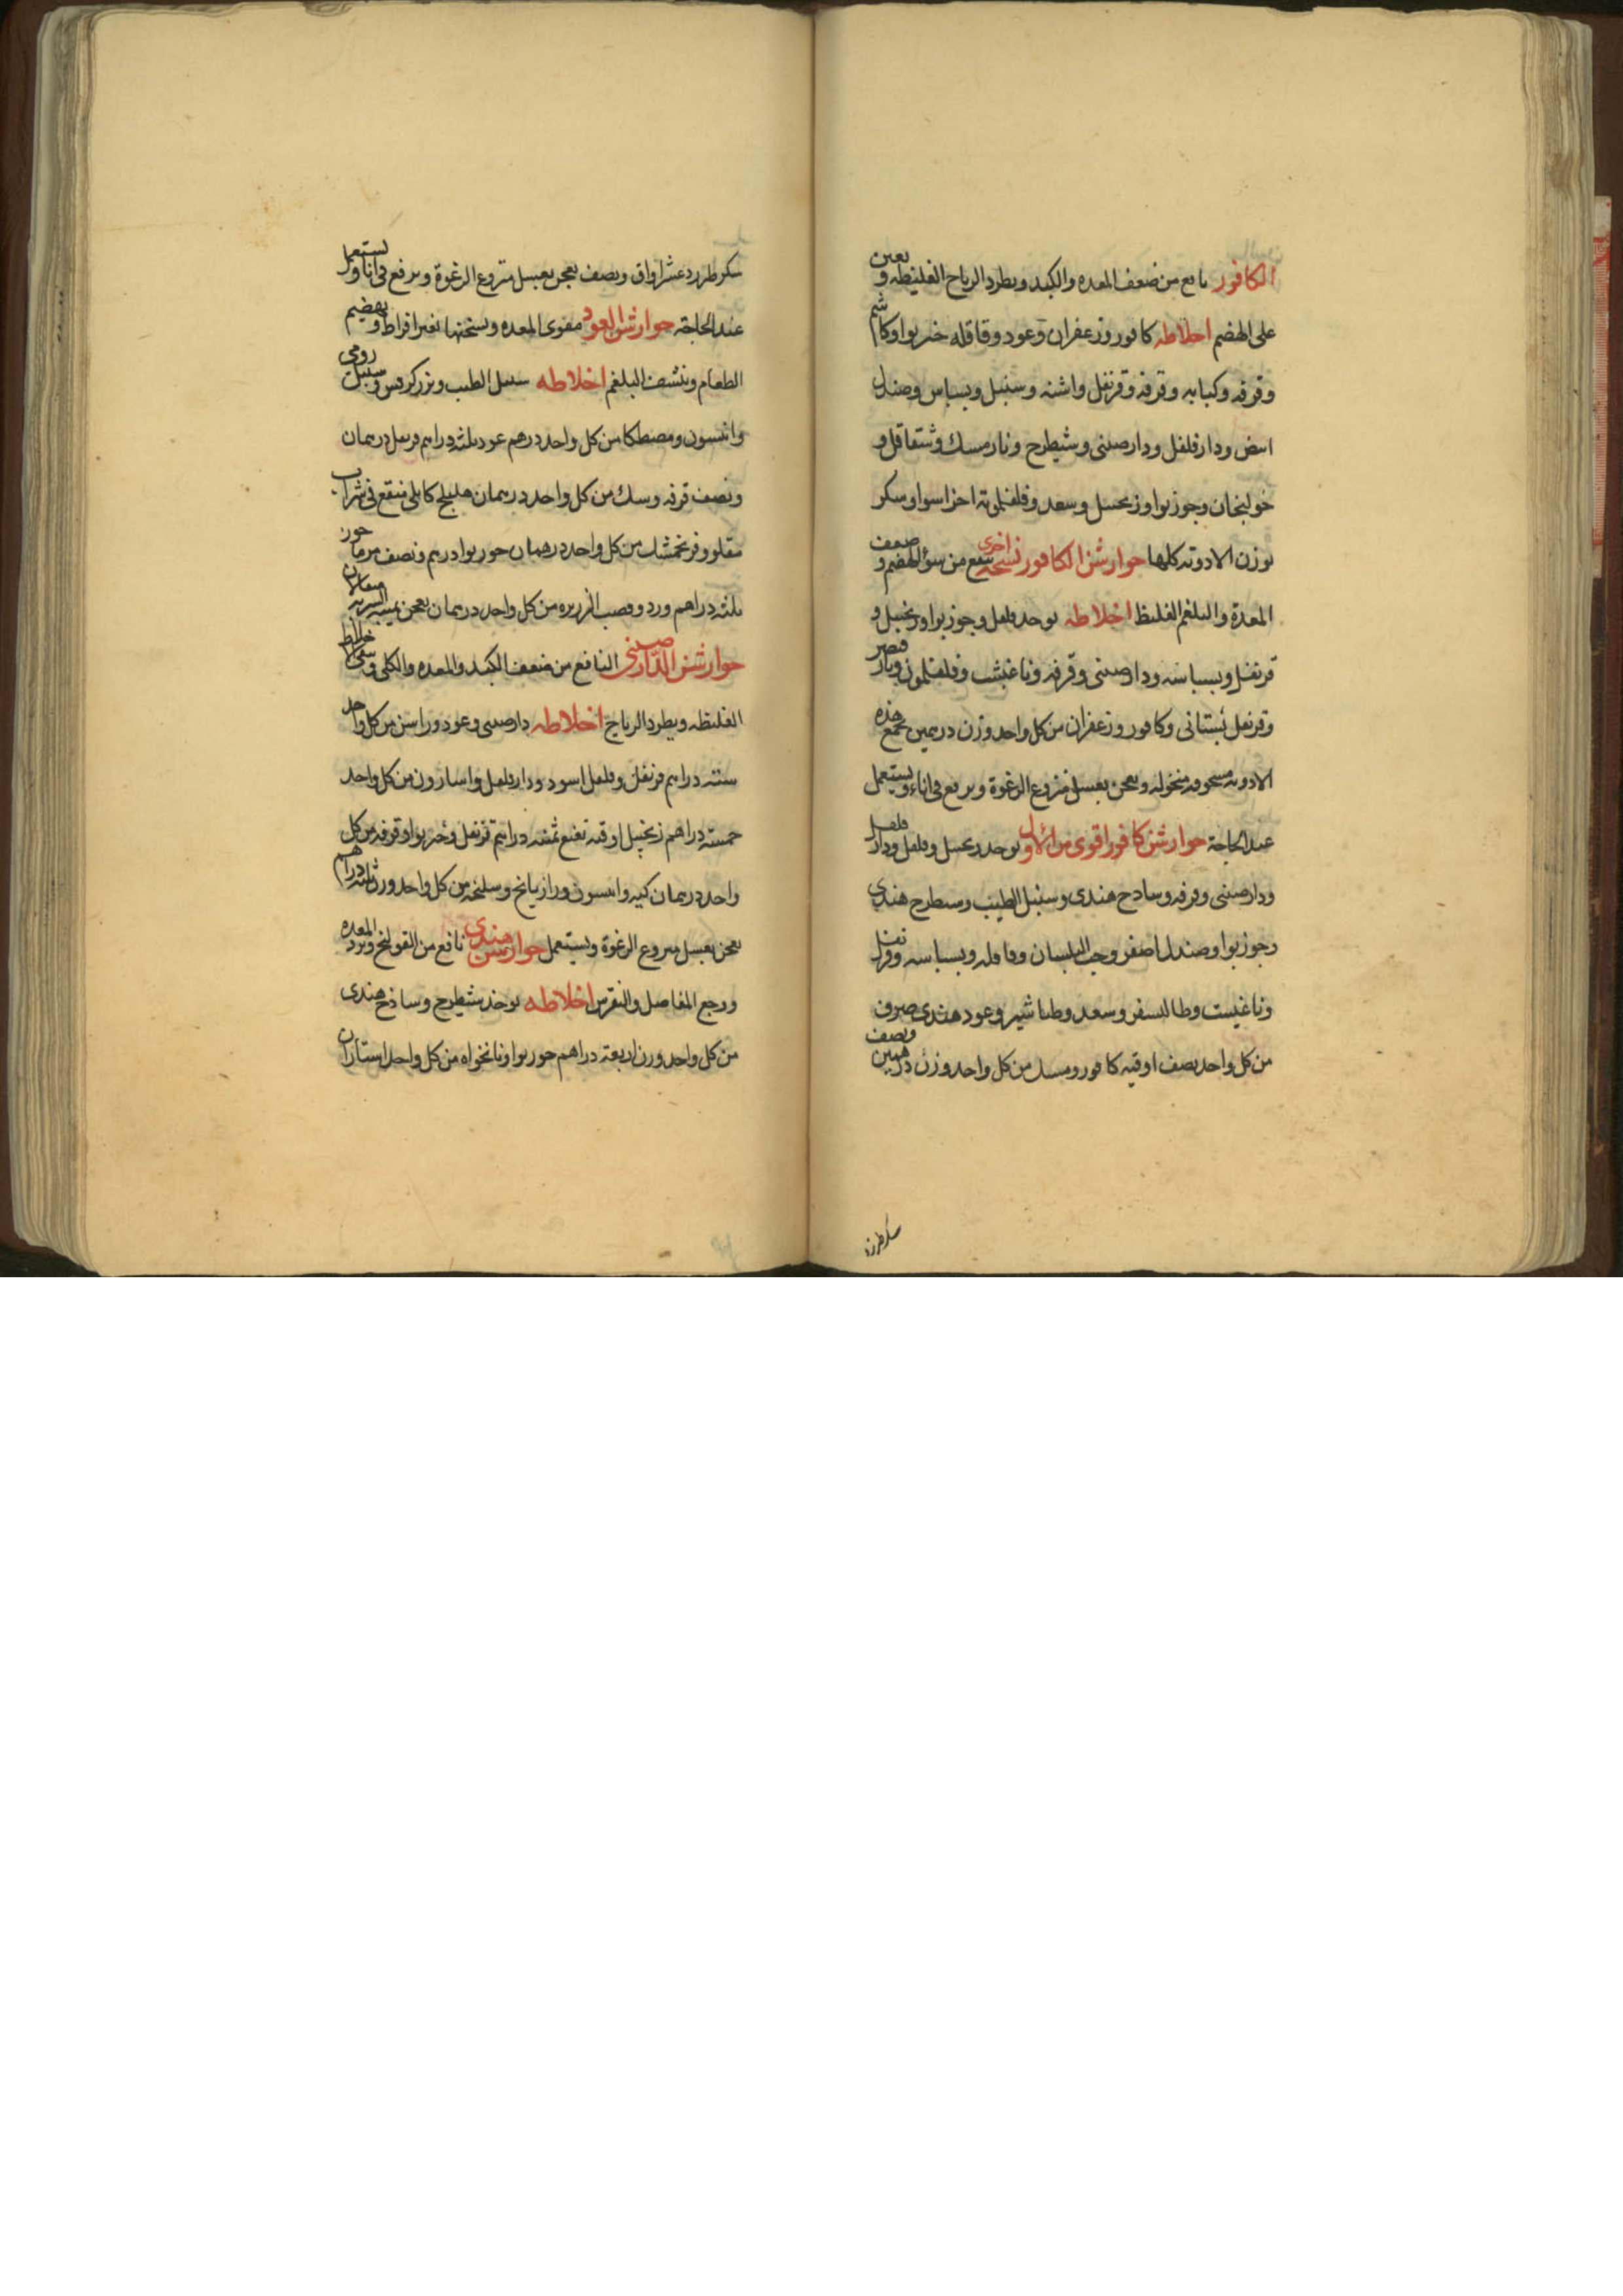 الكافور نافع من ضعف المعده والكبد ويطرد الرياح الغليظه ويعين
على الهضم اخلاطه كافور وزعفران وعود وقاقله خيربوا وكاشم
وقرفه وكبابه وقرفه وقرنفل واشنه وسنبل وبسباس وصندل
ابيض ودارفلفل ودارصينى وشيطرج ونارمسك وشقاقل و
خولنجان وجوزبوا وزنجبيل وسعد وفلفلمويه اجزا سوا وسكر
بوزن الادويه كلها جوارشن الكافور نسخه اخرى ينفع من سؤ الهضم وضعف
المعدة والبلغم الغليظ اخلاطه يوخد فلفل وجوزبوا وزنجبيل و
قرنفل وبسباسه ودارصينى وقرفه وناغبشت وفلفلمون ونارقيصر
وقرنفل بستانى وكافور وزعفران من كل واحد وزن درهمين يجمع هذه
الادويه مسحوقه منخوله ويعجن بعسل منزوع الرغوة ويرفع فى اناء ويستعمل
عند الحاجة جوارشن كافور اقوى من الاول يوخد زنجبيل وفلفل ودارفلفل
ودارصينى وقرفه وسادج هندى وسنبل الطيب وشيطرج هندي
وجوزبوا وصندل اصفر وحب البلسان وقاقله وبسباسه وقرنفل
وناغيست وطاليسفر وسعد وطباشير وعود هندى صرف
من كل واحد نصف اوقيه كافور ومسك من كل واحد وزن درهمين ونصف
سكر طبرزد
سكر طبرزد عشر اواق ونصف يعجن بعسل منزوع الرغوة ويرفع فى انا ويستعمل
عند الحاجة جوارشن العود مقوى المعده ويسخنها بغير افراط ويهضم
الطعام وينشف البلغم اخلاطه سنبل الطيب وبزركرفس وسنبل رومى
وانيسون ومصطكا من كل واحد درهم عود ثلثه دراهم قرنفل درهمان
ونصف قرفه وسك من كل واحد درهمان هليلج كابلى منقع فى شراب
مقلو وفرنجمشك من كل واحد درهمان جوزبوا درهم ونصف مرماحوز
ثلثه دراهم ورد وقصب الزريره من كل واحد درهمان يعجن بميبه الشربه مثقالان
جوارشن الدارصينى النافع من ضعف الكبد والمعده والكلى وسيما الاخلاط
الغليظه ويطرد الرياح اخلاطه دارصينى وعود وراسن من كل واحد
سته دراهم قرنفل وفلفل اسود ودارفلفل واسارون من كل واحد
خمسة دراهم زنجبيل اوقيه نعنع ثمنيه دراهم قرنفل وخيربوا وقرفه من كل
واحد درهمان كيه وانيسون ورازيانج وسليخه من كل واحد وزن ثلثه دراهم
يعجن بعسل منزوع الرغوة ويستعمل جوارشن هندى نافع من القولنج وبرد المعده
ووجع المفاصل والنقرس اخلاطه يوخذ شيطرج وساذج هندى
من كل واحد وزن اربعة دراهم جوزبوا ونانخواه من كل واحد استاران